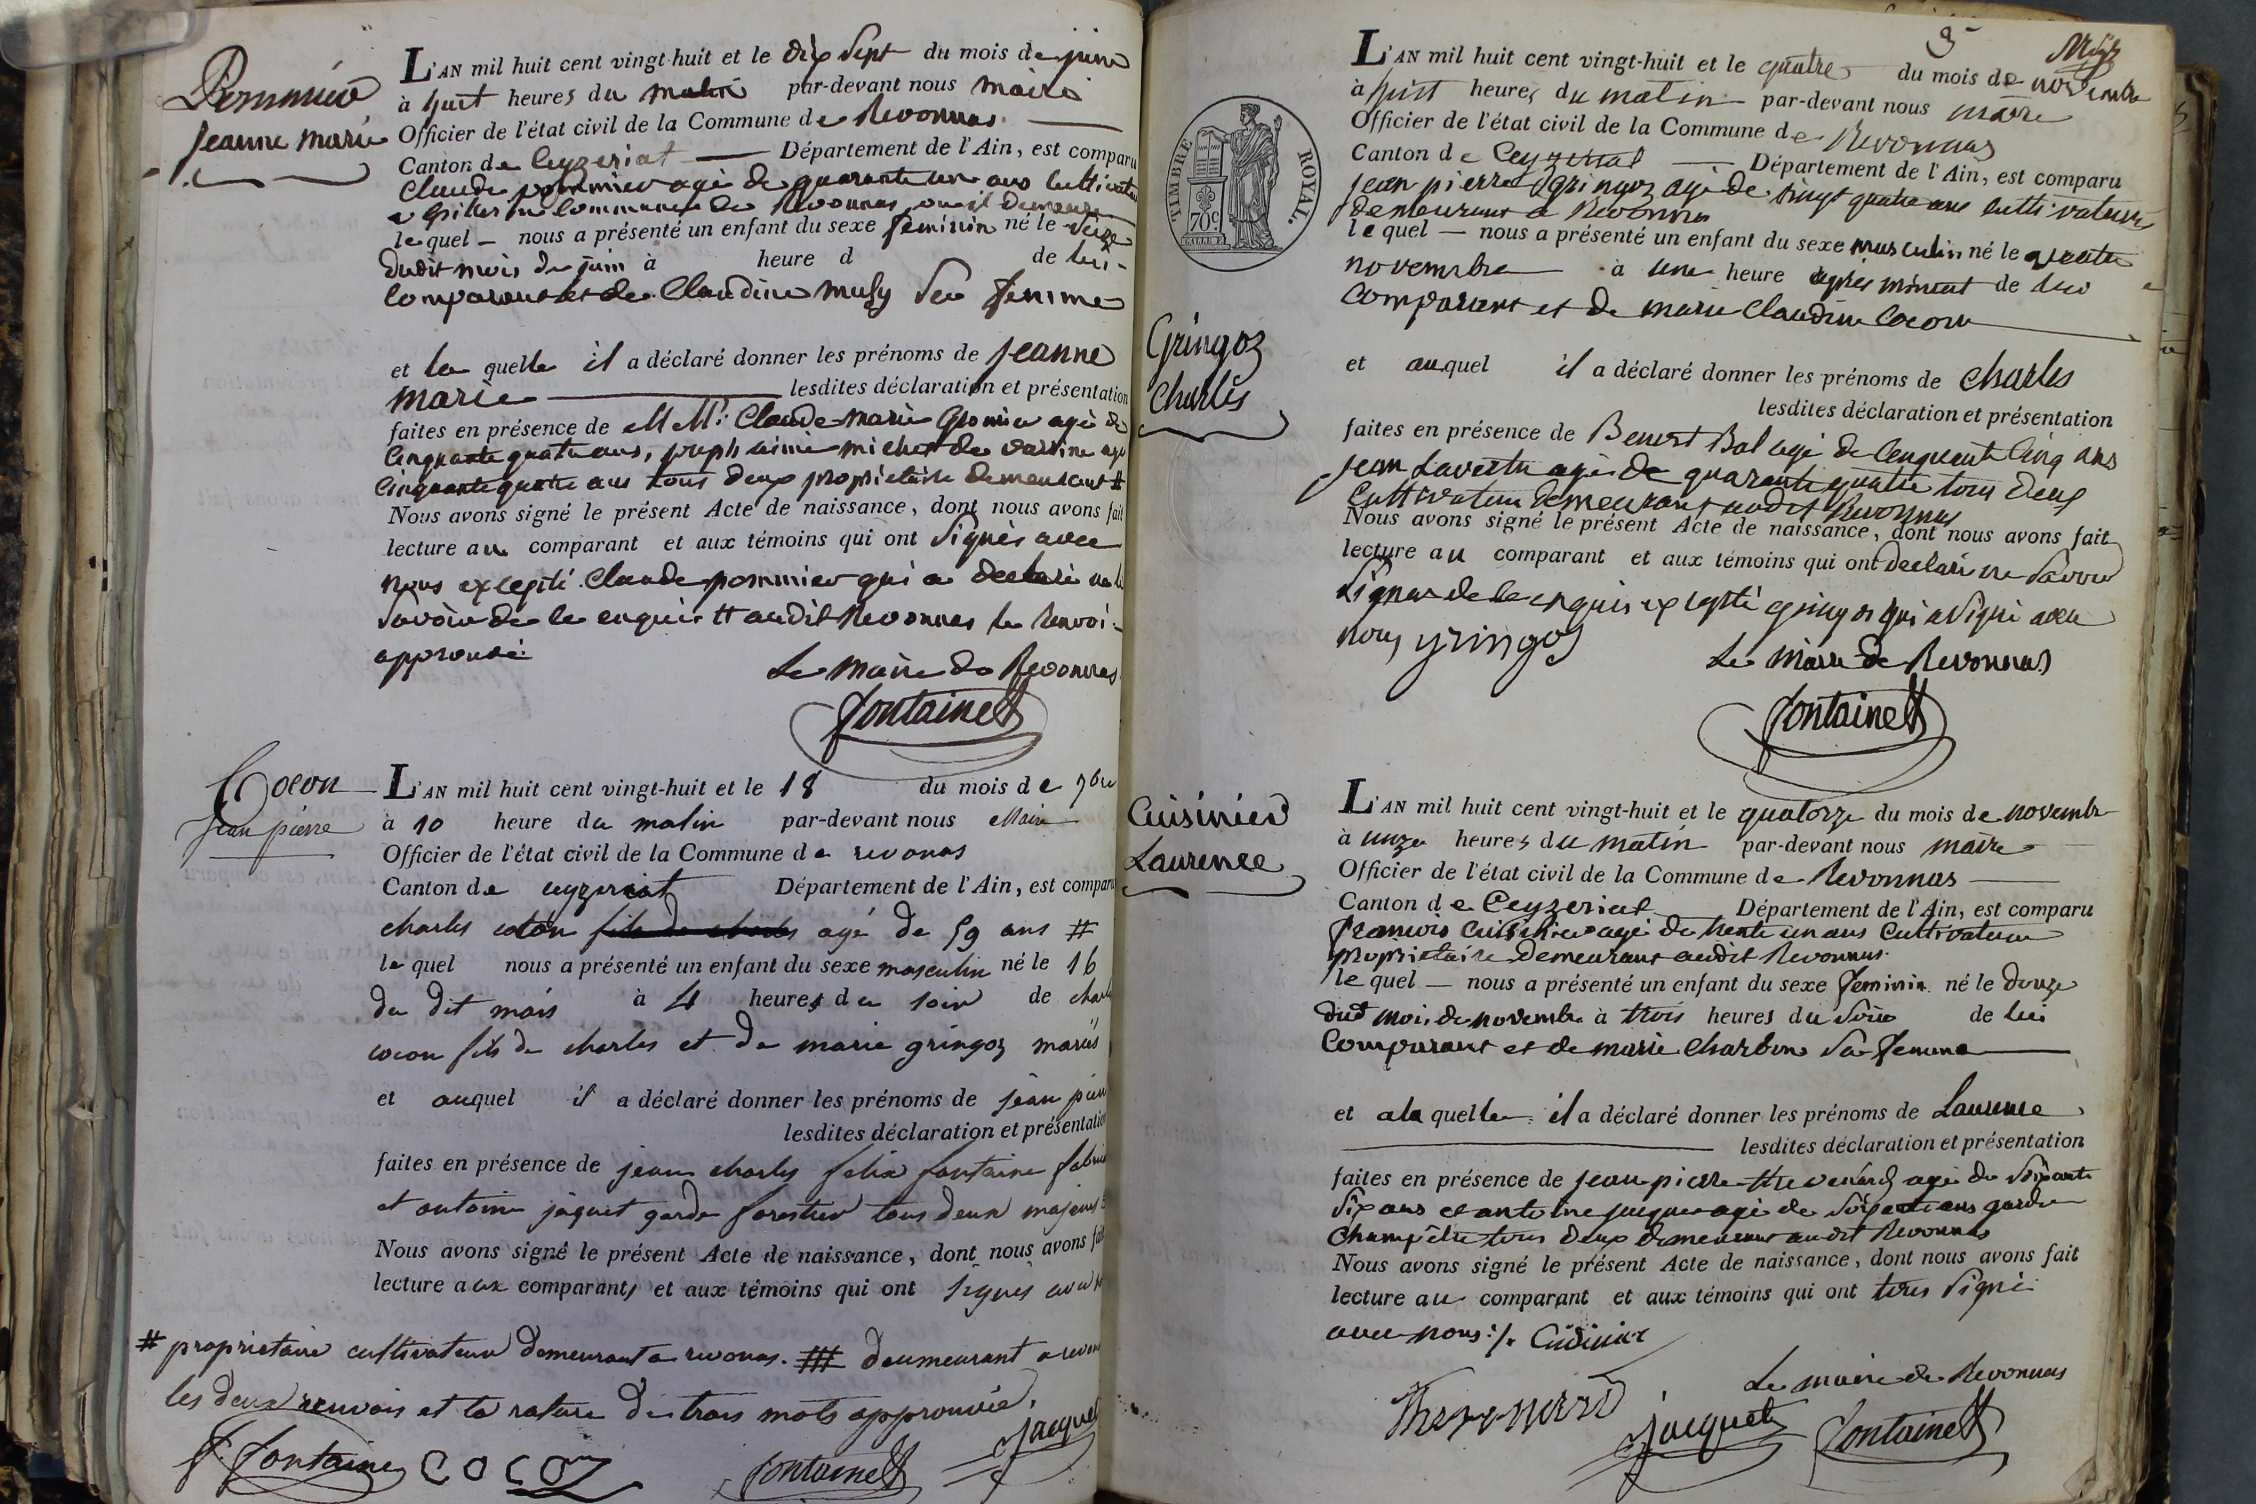 Pommier
Jeanne Marie
L'AN mil huit cent vingt-huit et le dix sept du mois de juin
à huit heures du matin par-devant nous maire
Officier de l'état civil de la Commune de Revonnas
Canton de Ceyzeriat Département de l'Ain, est comparu
Claude pommier agé de quarante un ans Cultivateur
commune de Revonnas ou il demeure
le quel nous a présenté un enfant du sexe feminin né le seize
dudit mois de juin à heure d de lui
Comparant et de Claudine Musy Sa femme
et la quelle il a déclaré donner les prénoms de jeanne
marie lesdites déclaration et présentation
faites en présence de M M.rs Claude Marie agé de
Cinquante quatre ans, joseph michel de agé
Cinquante quatre ans tous deux propriétaire demeurant #
Nous avons signé le présent Acte de naissance, dont nous avons fait
lecture au comparant et aux témoins qui ont signés avec
nous excepté Claude pommier qui a declaré ne le
Savoir de ce enquis # audit Revonnas le renvoi
approuvé
Le Maire de Revonnas
Fontaine
Cocon
Jean pierre
L'AN mil huit cent vingt-huit et le 18 du mois de 9bre
à 10 heure du matin par-devant nous Maire
Officier de l'état civil de la Commune de revonas
Canton de ceyzeriat Département de l'Ain, est comparu
charles cocon fils de charles agé de 59 ans #
le quel nous a présenté un enfant du sexe masculin né le 16
du dit mois à 4 heures du soir de charles
cocon fils de charles et de marie gringoz mariés
et auquel il a déclaré donner les prénoms de jean pierre
lesdites déclaration et présentation
faites en présence de jean charles felix fontaine
et antoine jaquet garde forestier tous deux majeurs
Nous avons signé le présent Acte de naissance, dont nous avons fait
lecture aux comparants et aux témoins qui ont signés avec
# proprietaire cultivateur demeurant a revonas. ### deumeurant a revonas
les deux renvois et la rature de trois mots approuvée.
f fontaine cocon Fontaine Jacquet
3
L'AN mil huit cent vingt-huit et le quatre du mois de novembre
à huit heures du matin par-devant nous maire
Officier de l'état civil de la Commune de Revonnas
Canton de Ceyzeriat Département de l'Ain, est comparu
jean pierre gringoz agé de vingt quatre ans cultivateur
demeurant a Revonnas
le quel nous a présenté un enfant du sexe masculin né le quatre
novembre à une heure après minuit de lui
comparant et de marie Claudine Cocon
TIMBRE ROYAL.
70 c.
Gringoz
Charles
et auquel il a déclaré donner les prénoms de charles
lesdites déclaration et présentation
faites en présence de Benoit Bal agé de cinquante cinq ans
jean agé de quarante quatre tous deux
Cultivateur demeurant audit Revonnas
Nous avons signé le présent Acte de naissance, dont nous avons fait
lecture au comparant et aux témoins qui ont declaré ne savoir
signer de ce enquis excepté gringoz qui a signé avec
nous gringoz
Le Maire de Revonnas
Fontaine
Cuisinier
Laurence
L'AN mil huit cent vingt-huit et le quatorze du mois de novembre
à onze heures du matin par-devant nous maire
Officier de l'état civil de la Commune de Revonnas
Canton de Ceyzeriat Département de l'Ain, est comparu
françois cuisinier agé de trente un ans Cultivateur
propriétaire demeurant audit Revonnas
le quel nous a présenté un enfant du sexe feminin né le douze
dud mois de novembre à trois heures du soir de lui
Comparant et de marie charbon Sa femme
et a la quelle il a déclaré donner les prénoms de Laurence
lesdites déclaration et présentation
faites en présence de jean pierre thevenard agé de soixante
six ans et antoine jacquet agé de soixante ans garde
champêtre tous deux demeurant audit Revonnas
Nous avons signé le présent Acte de naissance, dont nous avons fait
lecture au comparant et aux témoins qui ont tous signé
avec nous ./. Cuisinier
Le maire de Revonnas
Thevenard Jacquet Fontaine